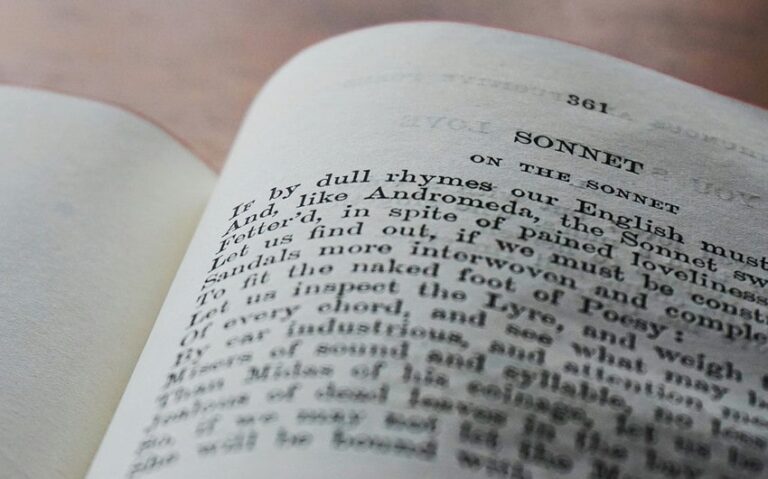 361
SONNET
ON THE SONNET
IF by dull rhymes our English must
And, like Andromeda, the Sonnet sw
Fetter'd, in spite of pained loveliness
Let us find out, if we must be constr
Sandals more interwoven and comple
To fit the naked foot of Poesy:
Let us inspect the Lyre, and weigh
Of every chord, and see what may b
By ear industrious, and attention me
Misers of sound and syllable, no less
Than Midas of his coinage, let us be
Jealous of dead leaves in the bay
So, if we may not let the
She will be bound with